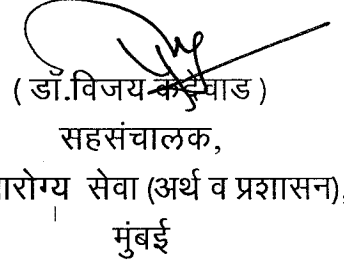 ( डॉ.विजय कंदेवाड )
सहसंचालक,
ारोग्य सेवा (अर्थ व प्रशासन),
मुंबई